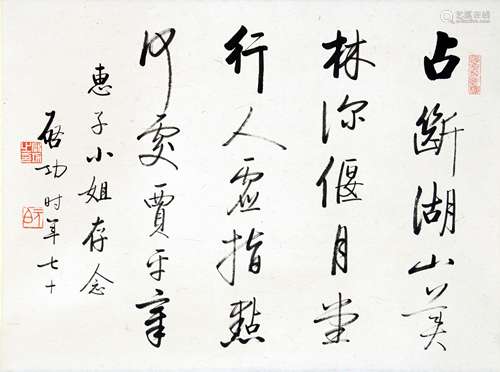 占斷湖山美
林深偃月堂
行人虛指點
何處賈平章
惠子小姐存念
啟功时年七十